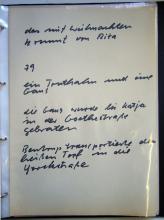 das mit weihnachten
kommt von Rita
79
ein Truthahn und eine
Gans
die Gans wurde bei Katja
in der Goethestraße
gebraten
Bentrup transportierte den
heißen Topf in die
Yorckstraße